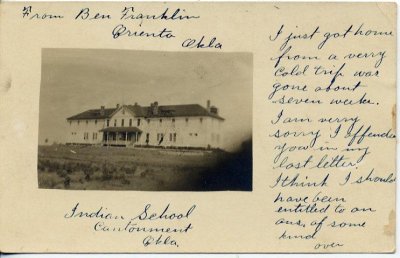 From Ben Franklin
Orienta
Okla
I just got home
from a verry
cold trip was
gone about
seven weeks.
I am verry
sorry I offended
you in my
last letter,
I think I should
have been
entitled to an
ans, of some
kind
over
Indian School
Cantonment
Okla.